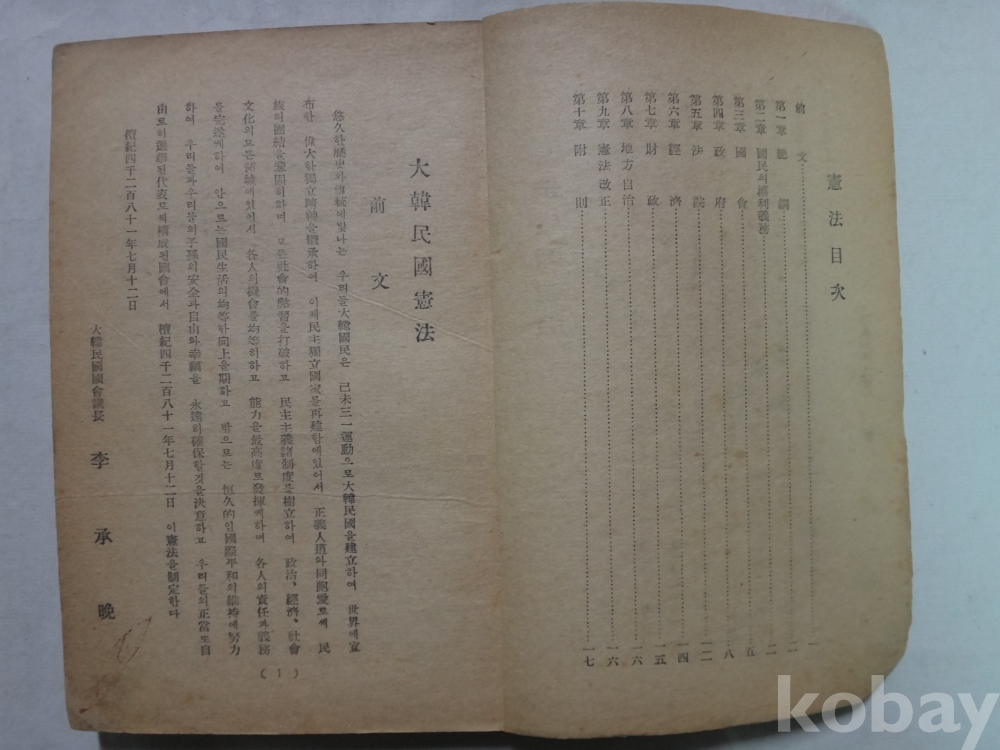 憲法目次
前文 一
第一章 總綱 一
第二章 國民의權利義務 二
第三章 國會 五
第四章 政府 八
第五章 法院 一二
第六章 經濟 一四
第七章 財政 一五
第八章 地方自治 一六
第九章 憲法改正 一六
第十章 附則 一七
大韓民國憲法
前文
悠久한歷史와傳統에빛나는 우리들大韓國民은 己未三一運動으로大韓民國을建立하여 世界에宣
布한 偉大한獨立精神을繼承하여 이제民主獨立國家를再建함에있어서 正義人道와同胞愛로써 民
族의團結을鞏固히하며 모든社會的弊習을打破하고 民主主義諸制度를樹立하여 政治、經濟、社會
文化의모든領域에있어서 各人의機會를均等히하고 能力을最高度로發揮케하며 各人의責任과義務
를完遂케하여 안으로는國民生活의均等한向上을期하고 밖으로는 恒久的인國際平和의維持에努力
하여 우리들과우리들의子孫의安全과自由와幸福을 永遠히確保할것을決意하고 우리들의正當또自
由로히選擧된代表로써構成된國會에서 檀紀四千二百八十一年七月十二日 이憲法을制定한다
檀紀四千二百八十一年七月十二日
大韓民國國會議長 李承晩
(1)
kobay